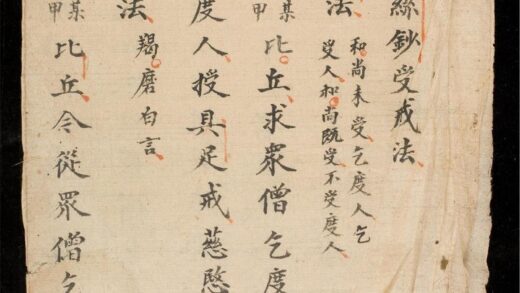 絲鈔受戒法
法
和尚未受乞度人乞
受人和尚既受不受度人
某甲比丘求眾僧乞度
度人授具足戒慈愍
法羯磨白言
某甲比丘令從眾僧乞